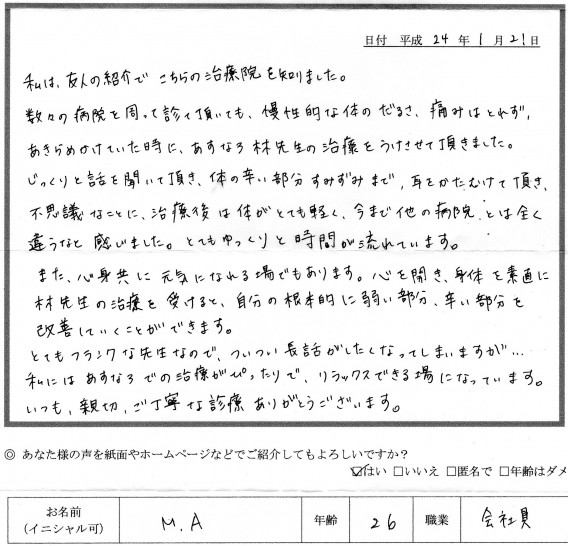 日付 平成 24 年 1 月 21 日
私は、友人の紹介で こちらの治療院を知りました。
数々の病院を周って診て頂いても、慢性的な体のだるさ、痛みはとれず、
あきらめかけていた時に、あすなろ 林先生の治療をうけさせて頂きました。
じっくりと話を聞いて頂き、体の辛い部分すみずみまで、耳をかたむけて頂き、
不思議なことに、治療後は体がとても軽く、今まで他の病院とは全く
違うなと感じました。とてもゆっくりと時間が流れています。
また、心身共に元気になれる場でもあります。心を開き、身体を素直に
林先生の治療を受けると、自分の根本的に弱い部分、辛い部分を
改善していくことができます。
とてもフランクな先生なので、ついつい長話がしたくなってしまいますが…
私にはあすなろでの治療がぴったりで、リラックスできる場になっています。
いつも、親切、ご丁寧な診療ありがとうございます。
◎ あなた様の声を紙面やホームページなどでご紹介してもよろしいですか？
☑はい □いいえ □匿名で □年齢はダメ
お名前 (イニシャル可) M.A 年齢 26 職業 会社員